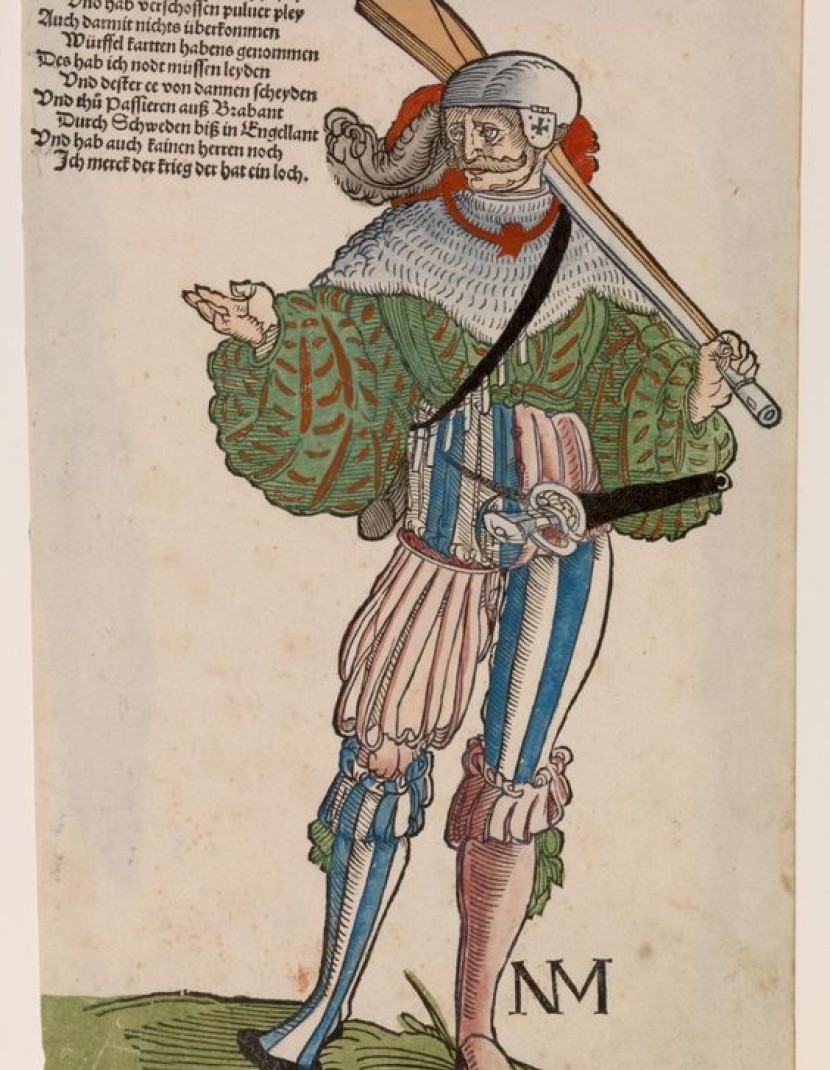 Vnd hab verschossen puluer pley
Auch darmit nichts überkommen
Würffel kartten habens genommen
Des hab ich nodt müssen leyden
Vnd dester ee von dannen scheyden
Vnd thů Passieren auß Brabant
Durch Schweden biß in Engellant
Vnd hab auch kainen herren noch
Ich merck der krieg der hat ein loch.
NM